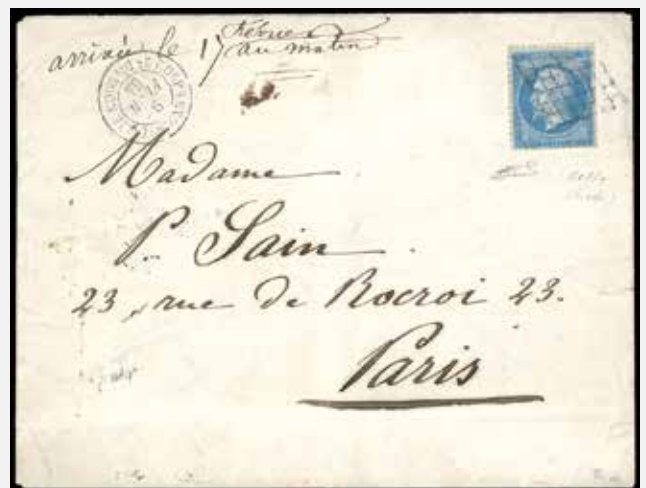 arrivée le 17 Février
au matin
Madame
P. Sain
23, rue de Rocroi 23.
Paris